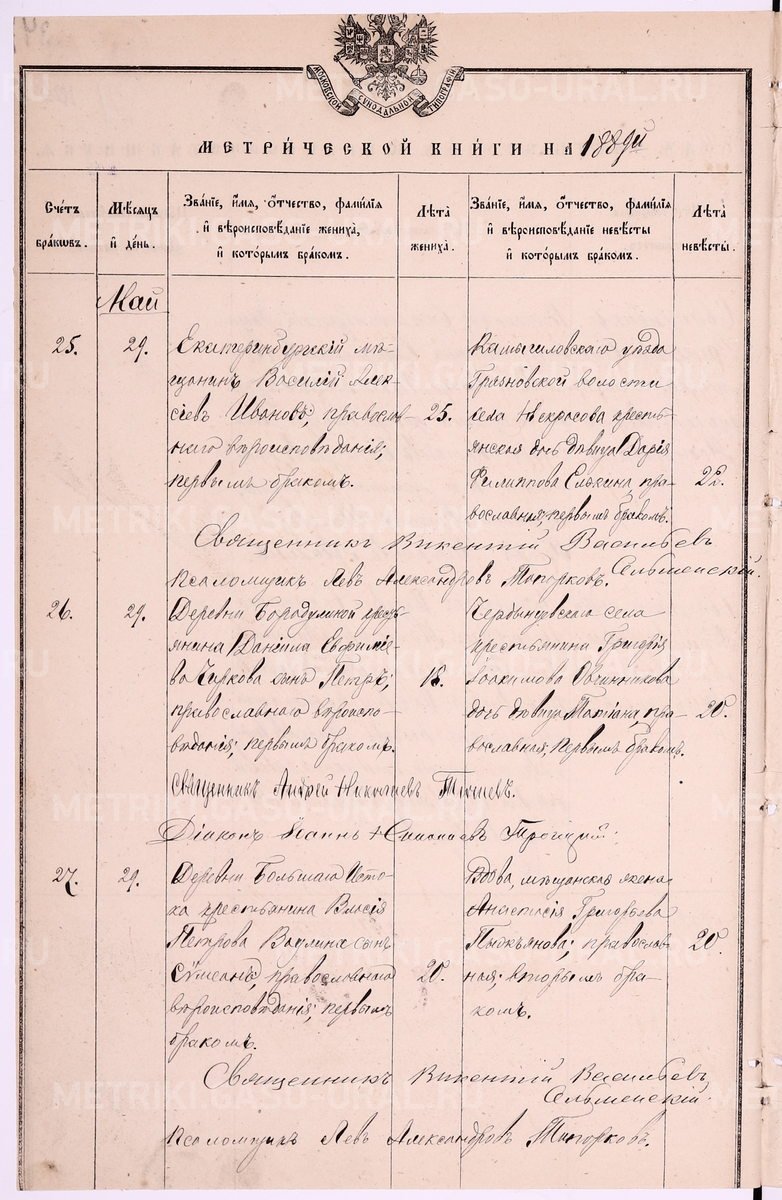 МОСКОВСКОЙ СѴНОДАЛЬНОЙ ТИПОГРАФІИ
МЕТРИ́ЧЕСКОЙ КНИ́ГИ НА 1889й
Сче́тъ бра́кωвъ.
Мѣ́сяцъ и҆ де́нь.
Зва́нїе, и҆́мя, ѻ҆́тчество, фами́лїя
и҆ вѣроисповѣ́данїе жениха̀,
и҆ кото́рымъ бра́комъ.
Лѣ́та жениха̀.
Зва́нїе, и҆́мя, ѻ҆́тчество, фами́лїя
и҆ вѣроисповѣ́данїе невѣ́сты
и҆ кото́рымъ бра́комъ.
Лѣ́та невѣ́сты.
Май
25.
29.
Екатеринбургскій мѣ-
щанинъ Василій Алек-
сіевъ Ивановъ; православ-
наго вѣроисповѣданія;
первымъ бракомъ.
25.
Камышловскаго уѣзда
Грязновской волости
села Некрасова кресть-
янская дочь дѣвица Дарія
Филиппова Елькина пра-
вославная; первымъ бракомъ.
22.
Священникъ Викентій Васильевъ
Сельменскій.
Псаломщикъ Левъ Александровъ Топорковъ.
26.
29.
Деревни Бородулиной кресть-
янина Даніила Евфиміе-
ва Чиркова сынъ Петръ;
православнаго вѣроиспо-
вѣданія; первымъ бракомъ.
18.
села
крестьянина Григорія
Іоакимова Овчинникова
дочь дѣвица Татіана, пра-
вославная; первымъ бракомъ.
20.
Священникъ Андрей Николаевъ
Діаконъ Іоаннъ Троицкій.
27.
29.
Деревни Большаго Исто-
ка крестьянина Власія
Петрова Вадлина сынъ
Сѵмеонъ, православнаго
вѣроисповѣданія; первымъ
бракомъ.
20.
Вдова, мѣщанская жена
Анастасія Григорьева
православ-
ная; вторымъ бра-
комъ.
20.
Священникъ Викентій Васильевъ
Сельменскій.
Псаломщикъ Левъ Александровъ Топорковъ.